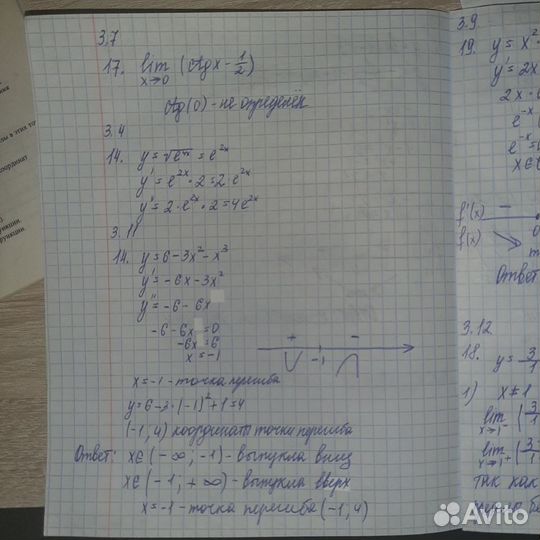 3.7
17. lim x→0 (ctg x - 1/2)
ctg(0) - не определён
3.4
14. y = √e⁴ˣ = e²ˣ
y' = e²ˣ · 2 = 2 · e²ˣ
y'' = 2 · e²ˣ · 2 = 4e²ˣ
3.11
14. y = 6 - 3x² - x³
y' = -6x - 3x²
y'' = -6 - 6x
-6 - 6x = 0
-6x = 6
x = -1
+ -
-1
x = -1 - точка перегиба
y = 6 - 3 · (-1)² + 1 = 4
(-1, 4) координаты точки перегиба
Ответ: x∈(-∞; -1) - выпукла вниз
x∈(-1; +∞) - выпукла вверх
x = -1 - точка перегиба (-1, 4)
3.9
19. y = x²
y' = 2x
2x
e⁻ˣ
e⁻ˣ
x∈
f'(x) -
f(x)
0
Ответ
3.12
18. y = 3
1) x ≠ 1
lim x→1⁻ (3
lim x→1⁺ (3
так как
точки
координат
функции
функции.
Avito